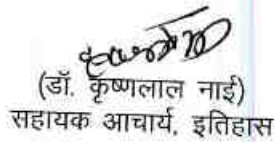 (डॉ. कृष्णलाल नाई)
सहायक आचार्य, इतिहास